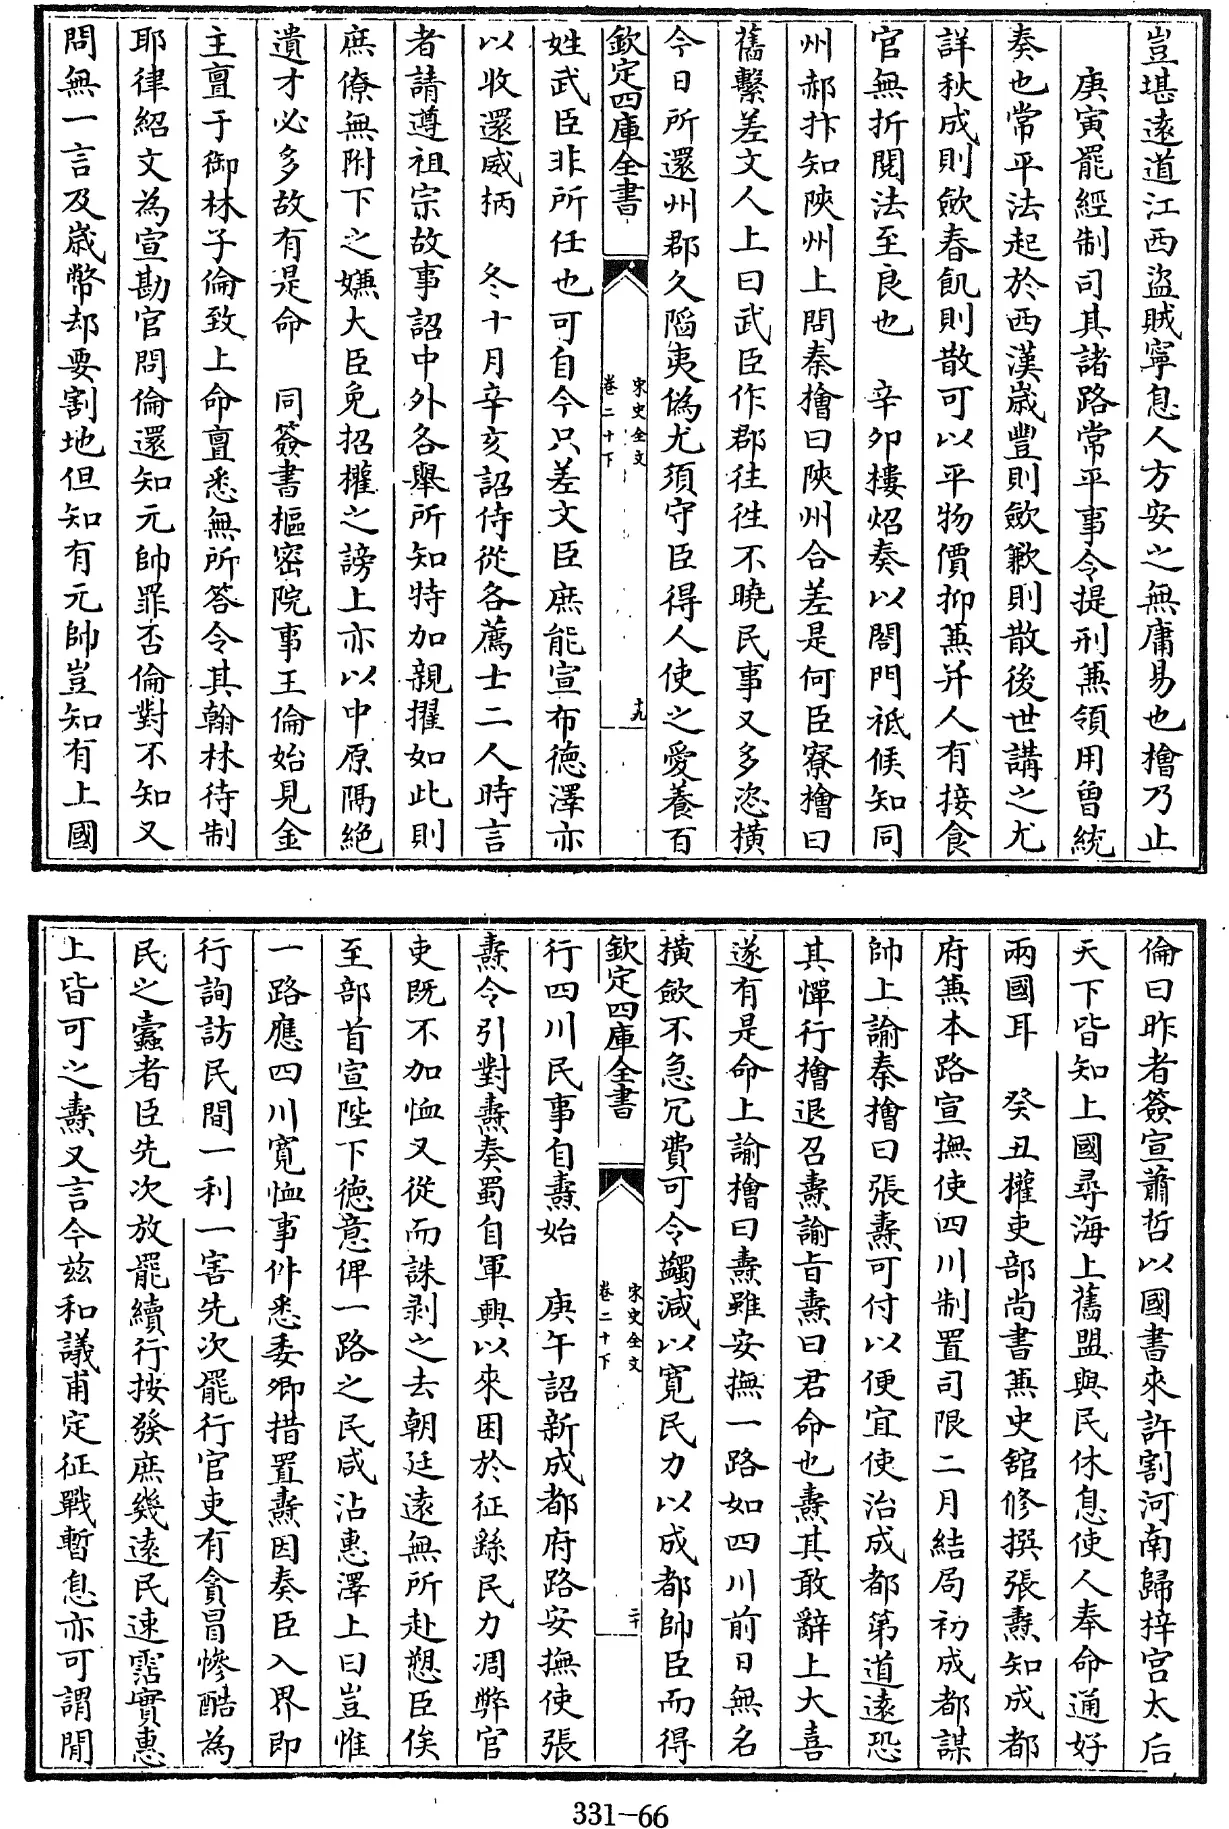 豈堪遠道江西盜賊寧息人方安之無庸易也檜乃止
庚寅罷經制司其諸路常平事令提刑兼領用曾統
奏也常平法起於西漢歲豐則斂歉則散後世講之尤
詳秋成則斂春飢則散可以平物價抑兼并人有接食
官無折閱法至良也　辛卯樓炤奏以閤門祗候知同
州郝抃知陜州上問秦檜曰陜州合差是何臣寮檜曰
舊繫差文人上曰武臣作郡往徃不曉民事又多恣橫
今日所還州郡久陷夷僞尤須守臣得人使之愛養百
欽定四庫全書
宋史全文
卷二十下
十九
姓武臣非所任也可自今只差文臣庶能宣布德澤亦
以收還威柄　冬十月辛亥詔侍從各薦士二人時言
者請遵祖宗故事詔中外各舉所知特加親擢如此則
庶僚無附下之嫌大臣免招權之謗上亦以中原隔絶
遺才必多故有是命　同簽書樞密院事王倫始見金
主亶于御林子倫致上命亶悉無所答令其翰林待制
耶律紹文為宣勘官問倫還知元帥罪否倫對不知又
問無一言及歲幣却要割地但知有元帥豈知有上國
倫曰昨者簽宣蕭哲以國書來許割河南歸梓宫太后
天下皆知上國尋海上舊盟與民休息使人奉命通好
兩國耳　癸丑權吏部尚書兼史舘修撰張燾知成都
府兼本路宣撫使四川制置司限二月結局初成都謀
帥上諭秦檜曰張燾可付以便宜使治成都第道遠恐
其憚行檜退召燾諭旨燾曰君命也燾其敢辭上大喜
遂有是命上諭檜曰燾雖安撫一路如四川前日無名
橫斂不急冗費可令蠲減以寛民力以成都帥臣而得
欽定四庫全書
宋史全文
卷二十下
二十
行四川民事自燾始　庚午詔新成都府路安撫使張
燾令引對燾奏蜀自軍興以來困於征繇民力凋弊官
吏既不加恤又從而誅剥之去朝廷遠無所赴愬臣俟
至部首宣陛下德意俾一路之民咸沾惠澤上曰豈惟
一路應四川寛恤事件悉委卿措置燾因奏臣入界即
行詢訪民間一利一害先次罷行官吏有貪冒慘酷為
民之蠹者臣先次放罷續行按發庶幾遠民速霑實惠
上皆可之燾又言今兹和議甫定征戰暫息亦可謂閒
331-66